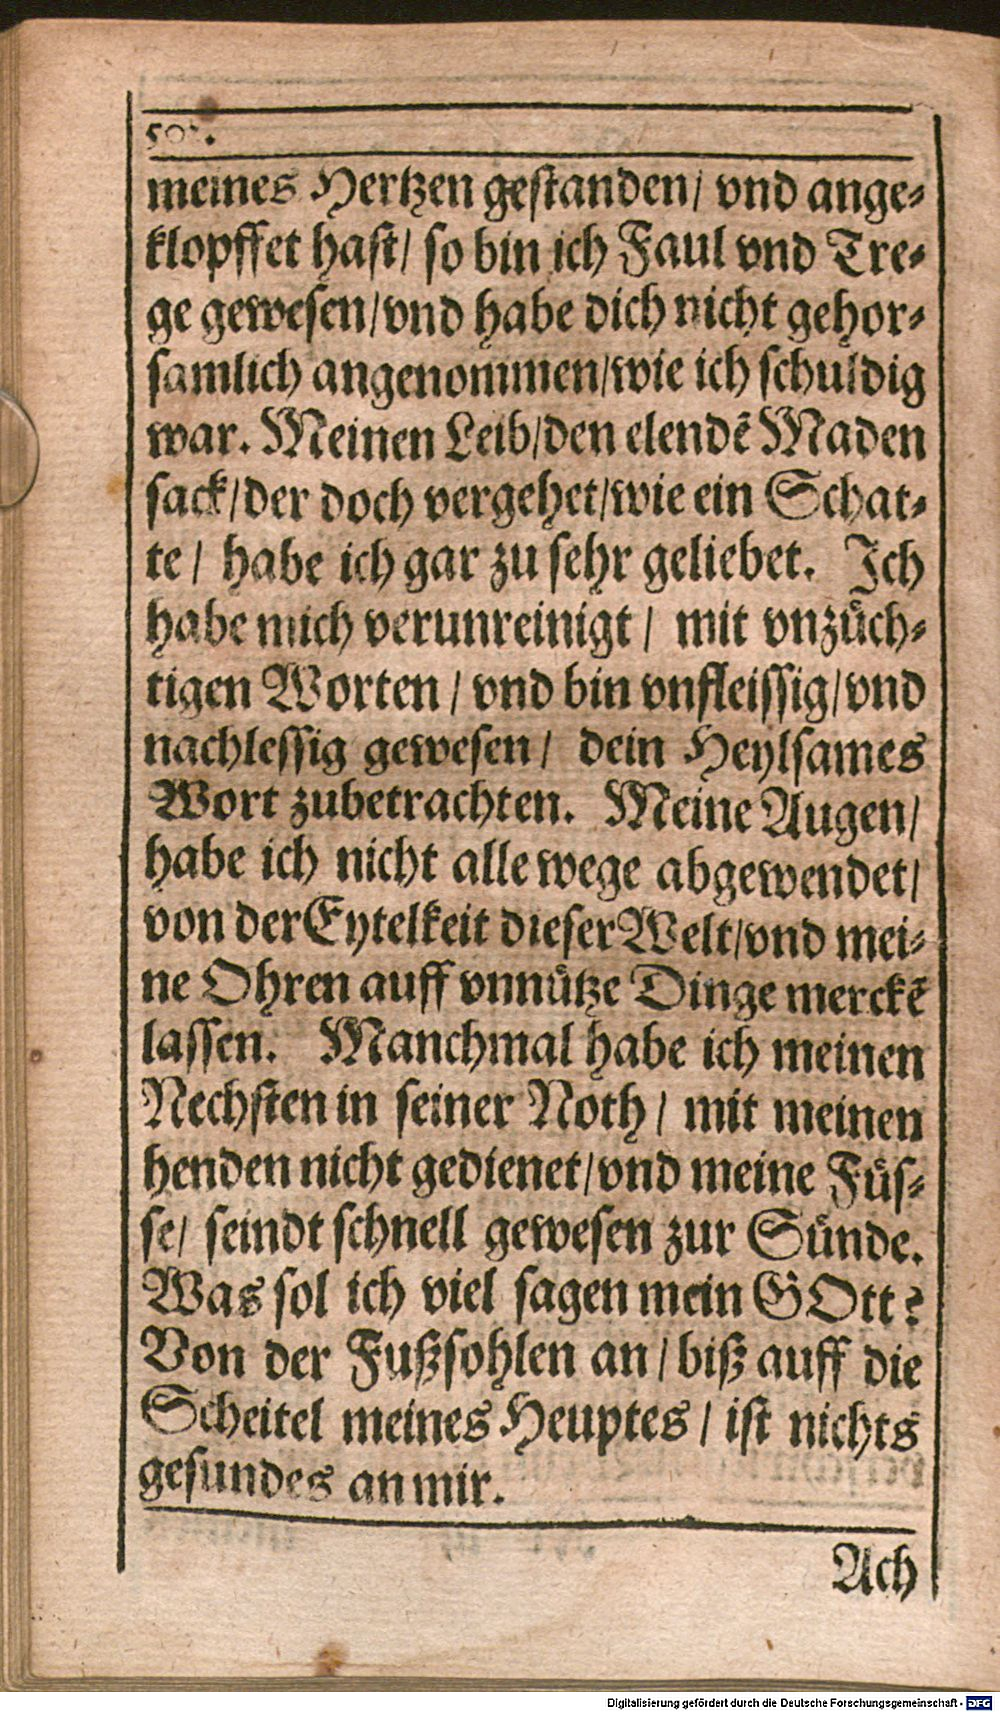 meines Hertzen gestanden/ vnd ange-
klopffet hast/ so bin ich Faul vnd Tre-
ge gewesen/vnd habe dich nicht gehor-
samlich angenommen/wie ich schuldig
war. Meinen Leib/den elendē Maden
sack/der doch vergehet/wie ein Schat-
te/ habe ich gar zu sehr geliebet. Ich
habe mich verunreinigt/ mit vnzüch-
tigen Worten/ vnd bin vnfleissig/vnd
nachlessig gewesen/ dein Heylsames
Wort zubetrachten. Meine Augen/
habe ich nicht alle wege abgewendet/
von der Eytelkeit dieser Welt/vnd mei-
ne Ohren auff vnnütze Dinge merckē
lassen. Manchmal habe ich meinen
Nechsten in seiner Noth/ mit meinen
henden nicht gedienet/vnd meine Füs-
se/ seindt schnell gewesen zur Sünde.
Was sol ich viel sagen mein GOtt?
Von der Fußsohlen an/ biß auff die
Scheitel meines Heuptes/ ist nichts
gesundes an mir.
Ach
Digitalisierung gefördert durch die Deutsche Forschungsgemeinschaft - DFG